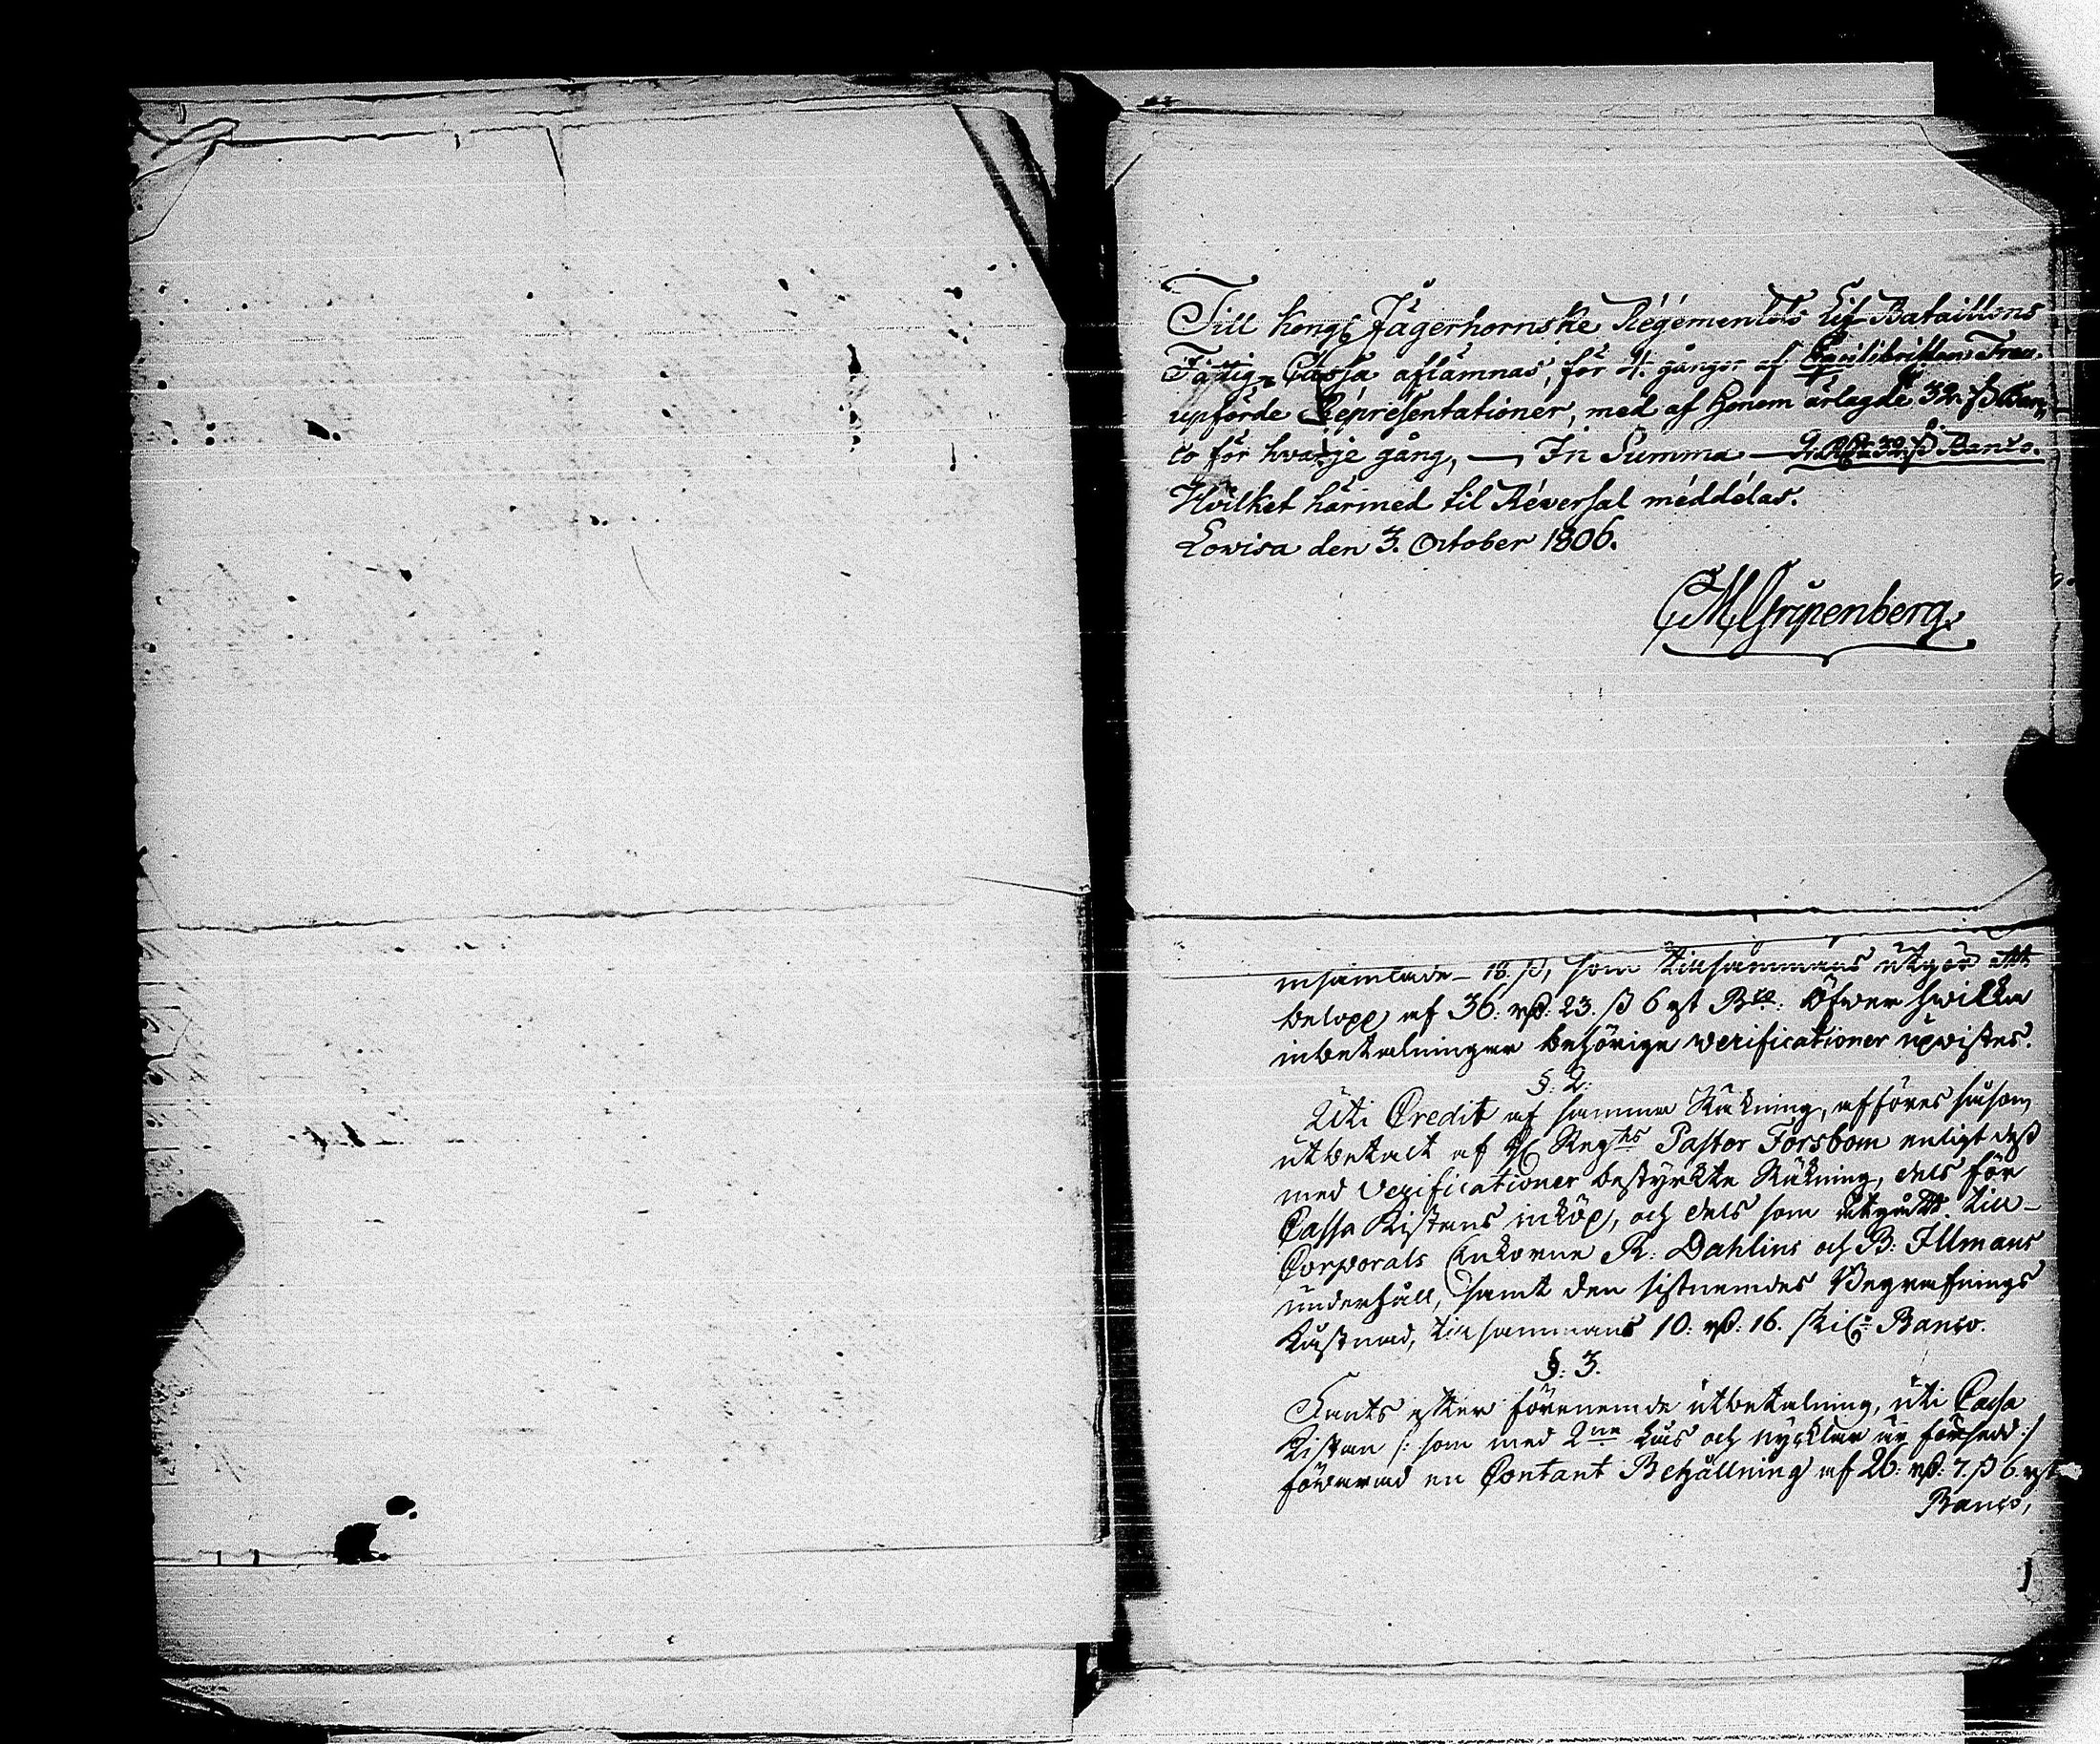 Till Kongl Jägerhornske Régementets Lif Bataillons
Fattig-Cassa aflämnas, för 4: gånger af Equilibristen Frau,
upförde Représentationer, med af Honom ärlagde 32. ß Ban,
co för hvarje gång, — In Summa — 2. Rdr 32. ß Banco.
Hvilket härmed til Réversal méddélas.
Lovisa den 3. October 1806.
CMGripenberg
insamlade – 18. ß, som tillsammans utgör ett
belopp af 36: rd: 23. ß 6 rst Bco: Öfver hvilka
inbetalningar behörige verificationer upvistes.
§: 2:
Uti Credit af samma Räkning, afföres såsom
utbetalt af H Regts Pastor Forsbom enligt deß
med Verificationer bestyrkte Räkning, dels för
Cassa Kistans inköp, och dels som utgått till
Corporals Enkorne R: Dahlins och B: Illmans
underhåll, samt den sistnemdes Begrafnings
kåstnad, tillsammans 10: rd: 16. skil: Banco.
§: 3.
Fants efter förenemde utbetalning, uti Cassa
Kistan /: som med 2ne Lås och nycklar är försedd :/
förvarad en Contant Behållning af 26: rd: 7. ß 6. rst
Banco,